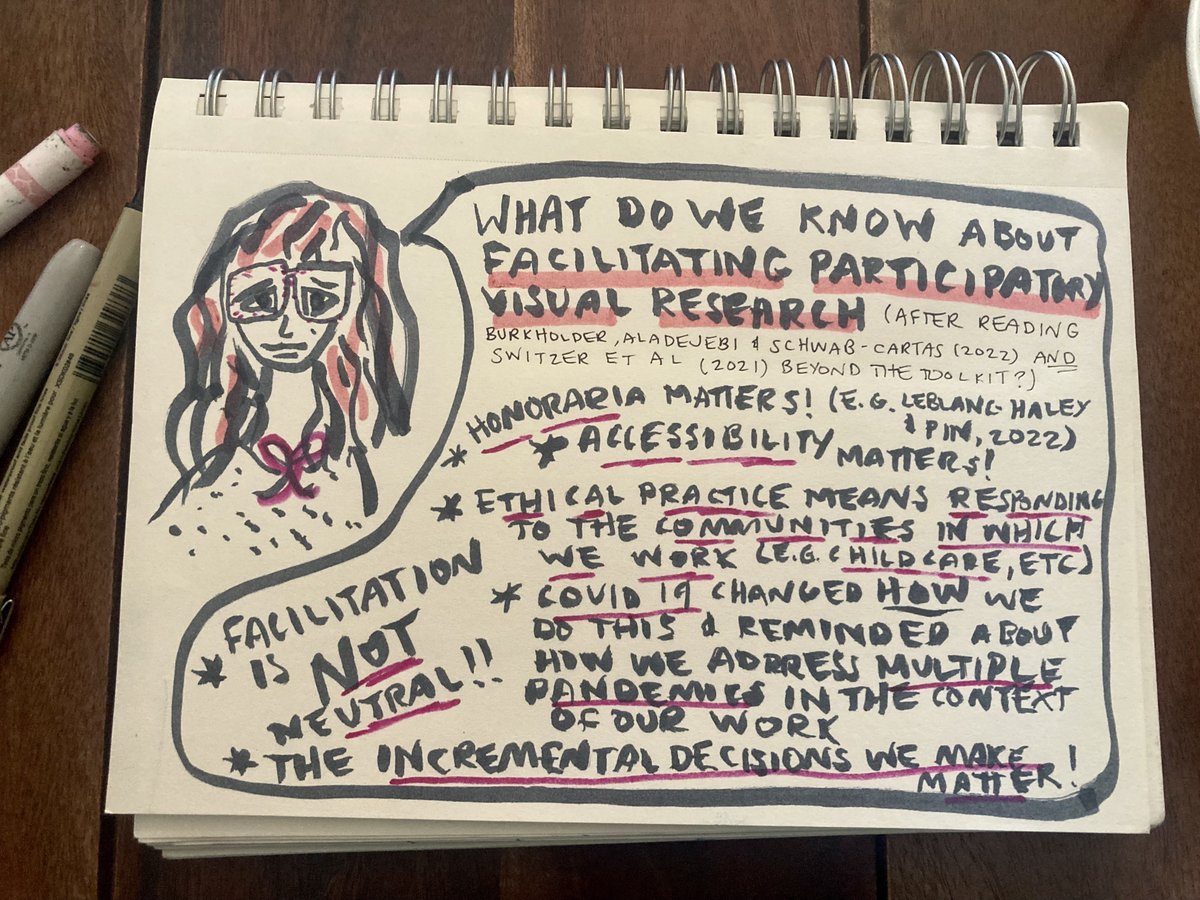 WHAT DO WE KNOW ABOUT
FACILITATING PARTICIPATORY
VISUAL RESEARCH (AFTER READING
BURKHOLDER, ALADEJEBI & SCHWAB-CARTAS (2022) AND
SWITZER ET AL (2021) BEYOND THE TOOLKIT?)
* HONORARIA MATTERS! (E.G. LEBLANG-HALEY
& PIN, 2022)
* ACCESSIBILITY MATTERS!
* ETHICAL PRACTICE MEANS RESPONDING
TO THE COMMUNITIES IN WHICH
WE WORK (E.G. CHILDCARE, ETC)
* COVID 19 CHANGED HOW WE
DO THIS & REMINDED ABOUT
HOW WE ADDRESS MULTIPLE
PANDEMICS IN THE CONTEXT
OF OUR WORK
* FACILITATION
IS NOT
NEUTRAL!!
* THE INCREMENTAL DECISIONS WE MAKE
MATTER!